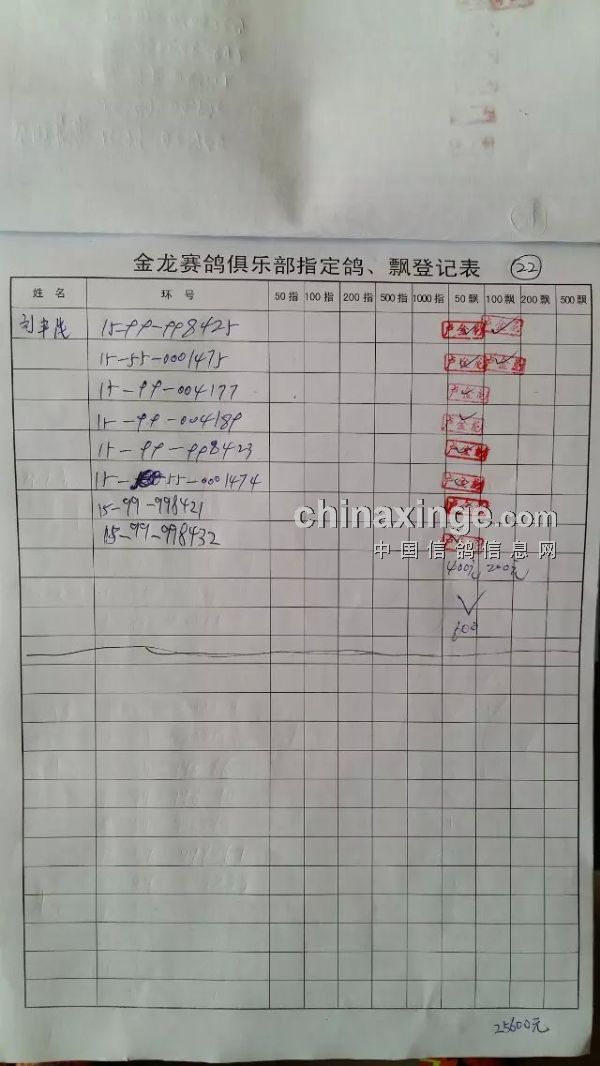 金龙赛鸽俱乐部指定鸽、飘登记表 22
姓名 环号 50指 100指 200指 500指 1000指 50飘 100飘 200飘 500飘
15-99-998425
15-55-0001475
15-99-004177
15-99-004189
15-99-998423
15-55-0001474
15-99-998421
15-99-998432
chinaxinge.com
中国信鸽信息网
400元 200元
600
25600元